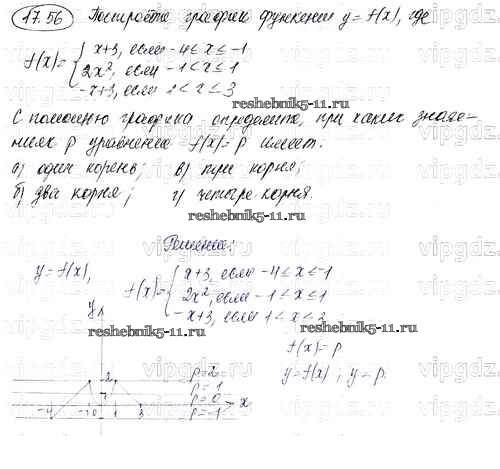 17.56 Постройте график функции y = f(x), где
f(x) = { x+3, если -4 ≤ x ≤ -1
2x², если -1 < x ≤ 1
-x+3, если 1 < x ≤ 3
reshebnik5-11.ru
С помощью графика определите, при каких значе-
ниях p уравнение f(x) = p имеет:
а) один корень; в) три корня;
б) два корня; г) четыре корня.
reshebnik5-11.ru
Решение:
y = f(x),
f(x) = { x+3, если -4 ≤ x ≤ -1
2x², если -1 < x ≤ 1
-x+3, если 1 < x ≤ 2
reshebnik5-11.ru
f(x) = p
y = f(x); y = p.
y
2
p = 2
p = 1
p = 0
p = -1
-4 -1 0 1 3 x
reshebnik5-11.ru
vipgdz.ru